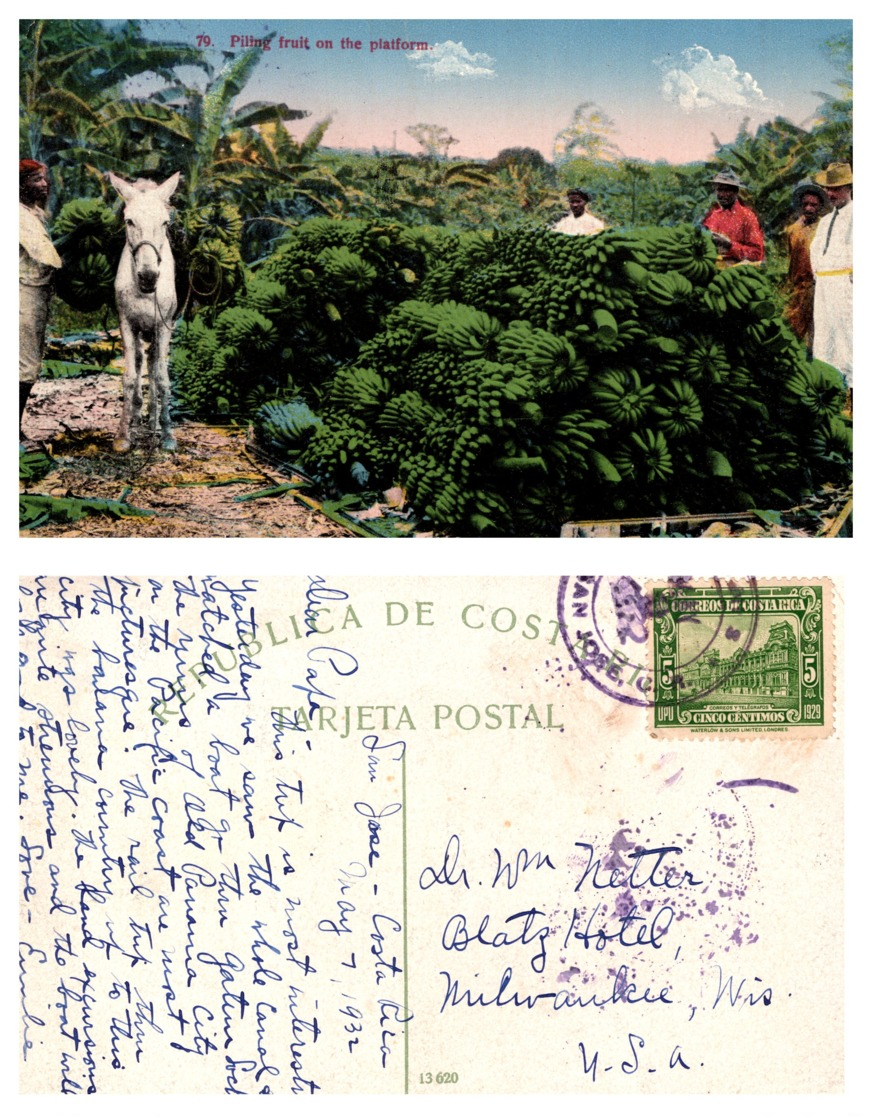 79. Piling fruit on the platform.
REPUBLICA DE COSTA RICA
TARJETA POSTAL
SAN JOSE,
CORREOS DE COSTA RICA
5 5
CORREOS Y TELEGRAFOS
UPU CINCO CENTIMOS 1929
WATERLOW & SONS LIMITED, LONDRES.
San Jose - Costa Rica
May 7, 1932
Dear Papa -
This trip is most interesting
Yesterday we saw the whole Canal &
watched a boat go thru Gatun Lock
The ruins of Old Panama City
on the Pacific coast are most
picturesque. The rail trip thru
the banana country up to this
city was lovely. The land excursions
quite strenuous and the boat will
to me. Love - Emilie
Dr. Wm Netter
Blatz Hotel,
Milwaukee, Wis.
U.S.A.
13620